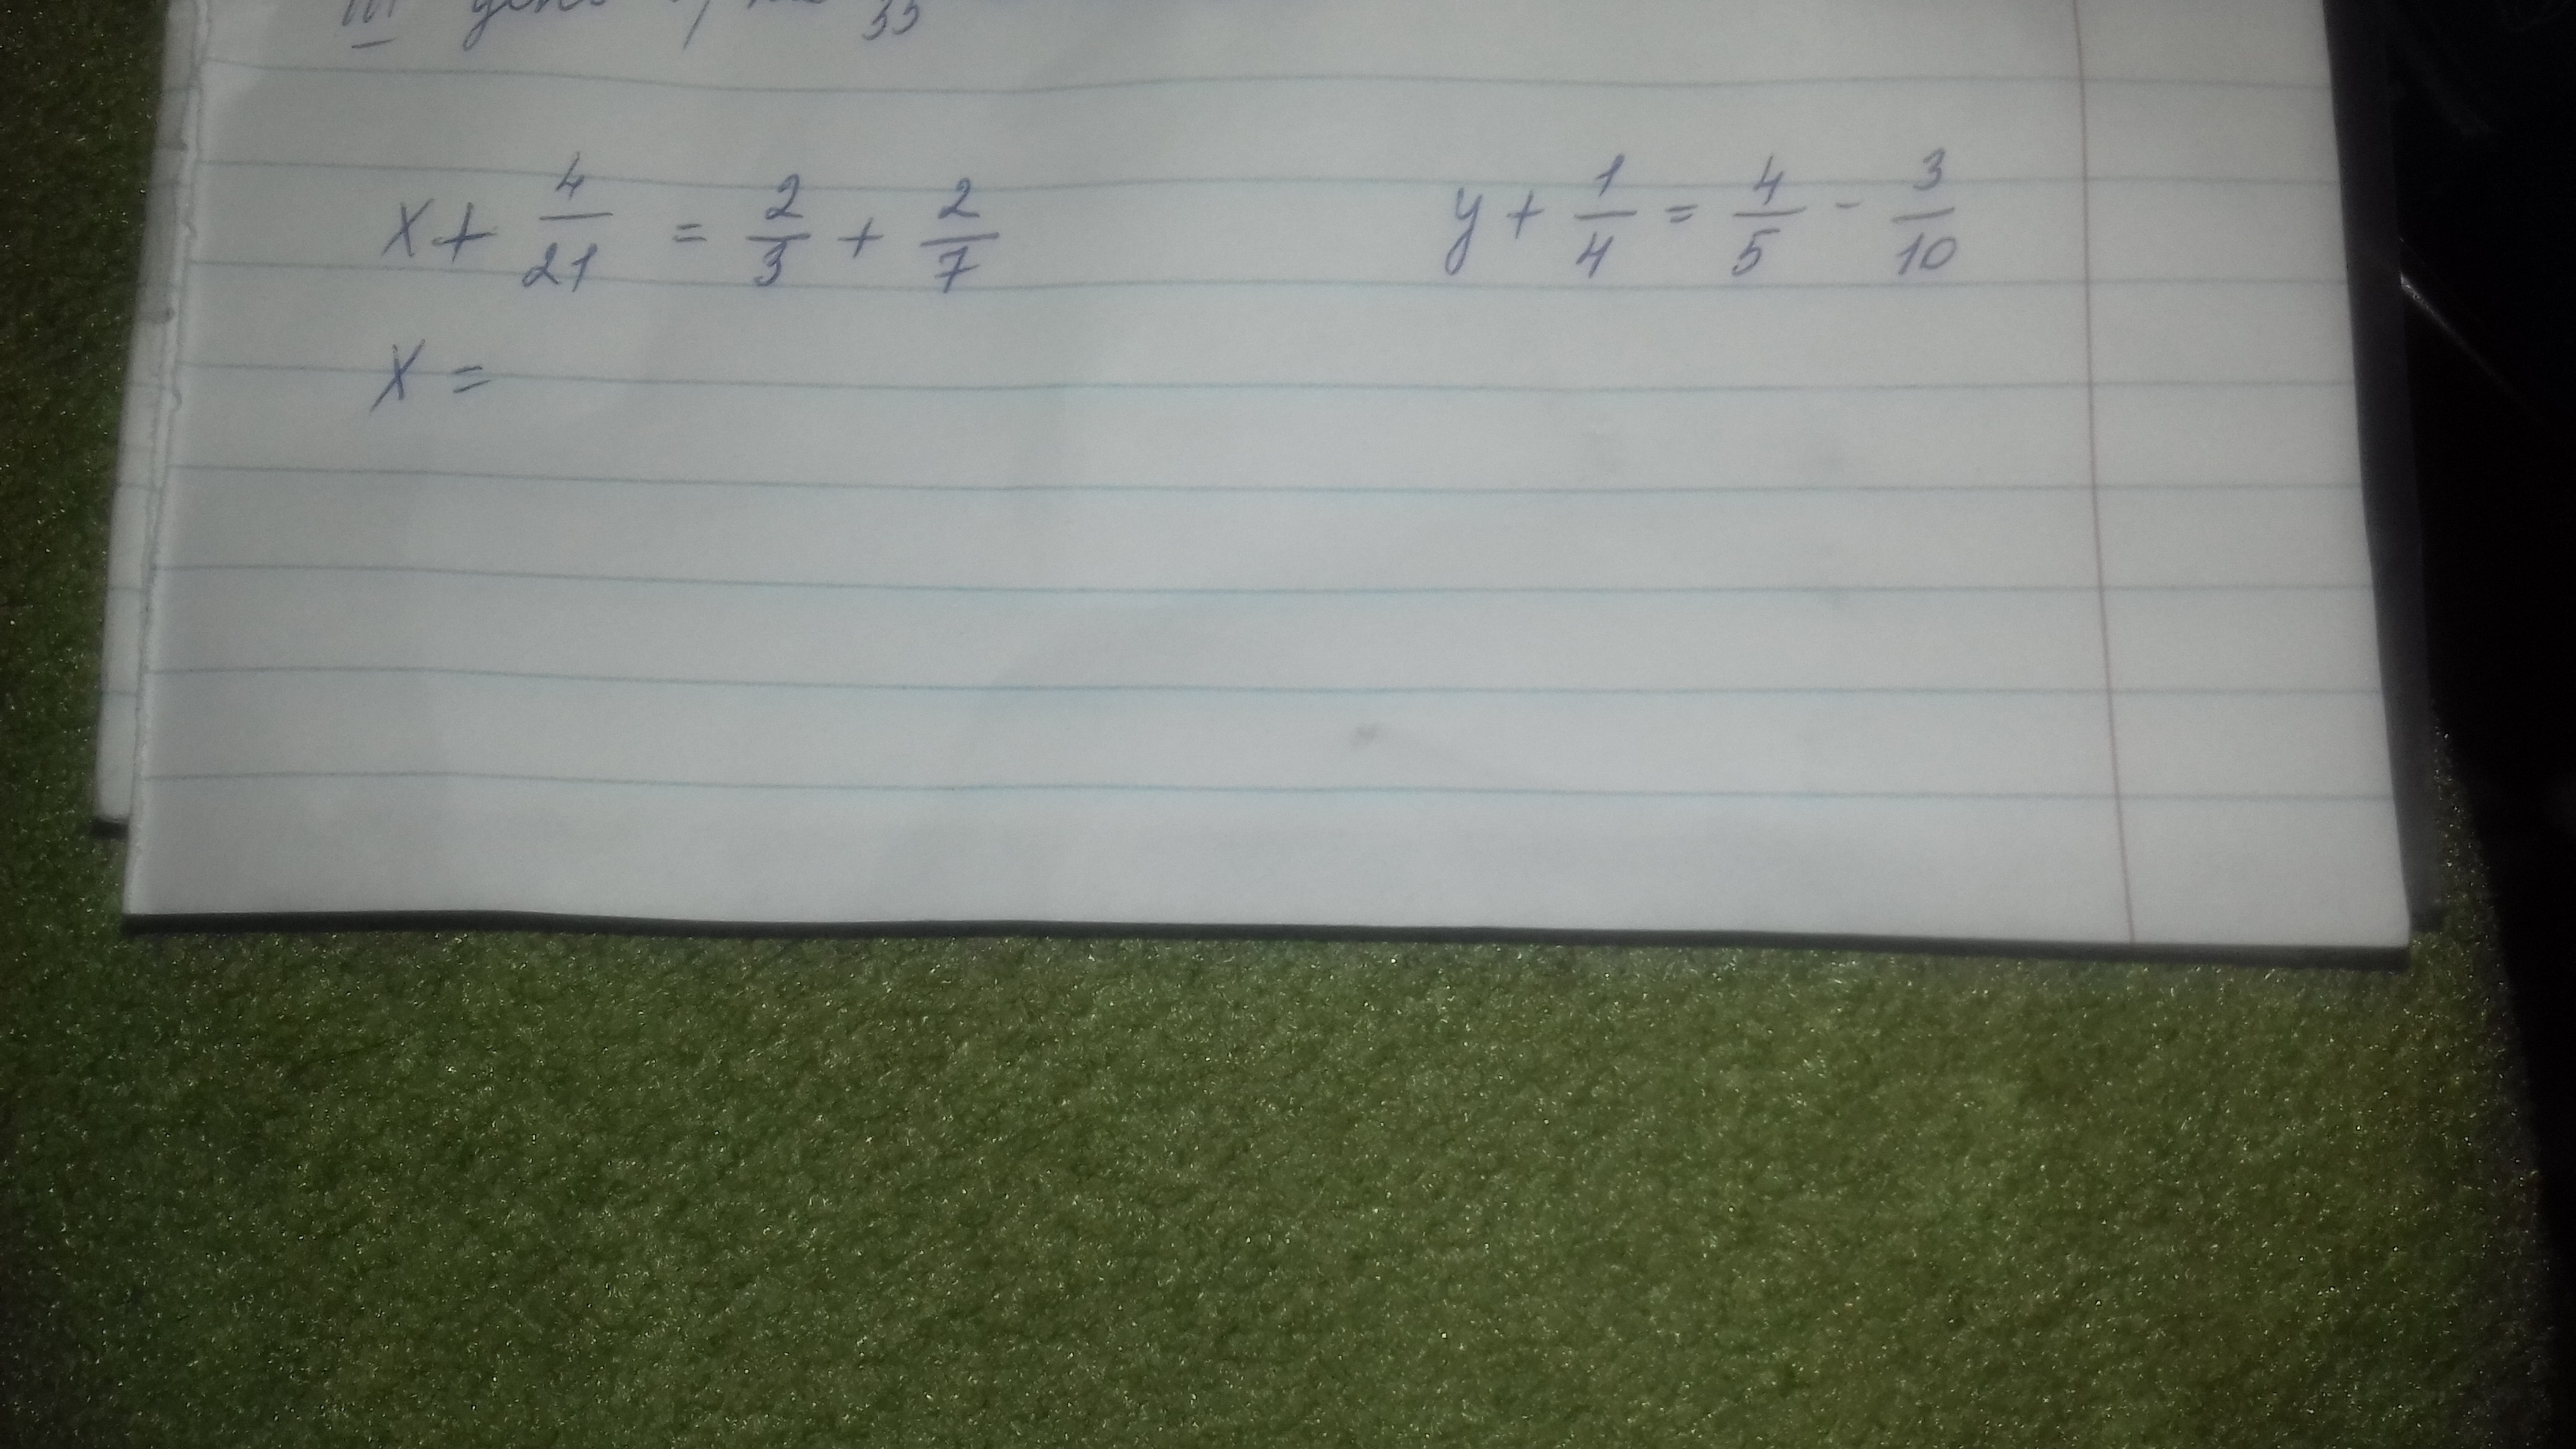 III
35
x + 4/21 = 2/3 + 2/7    y + 1/4 = 4/5 - 3/10
x =